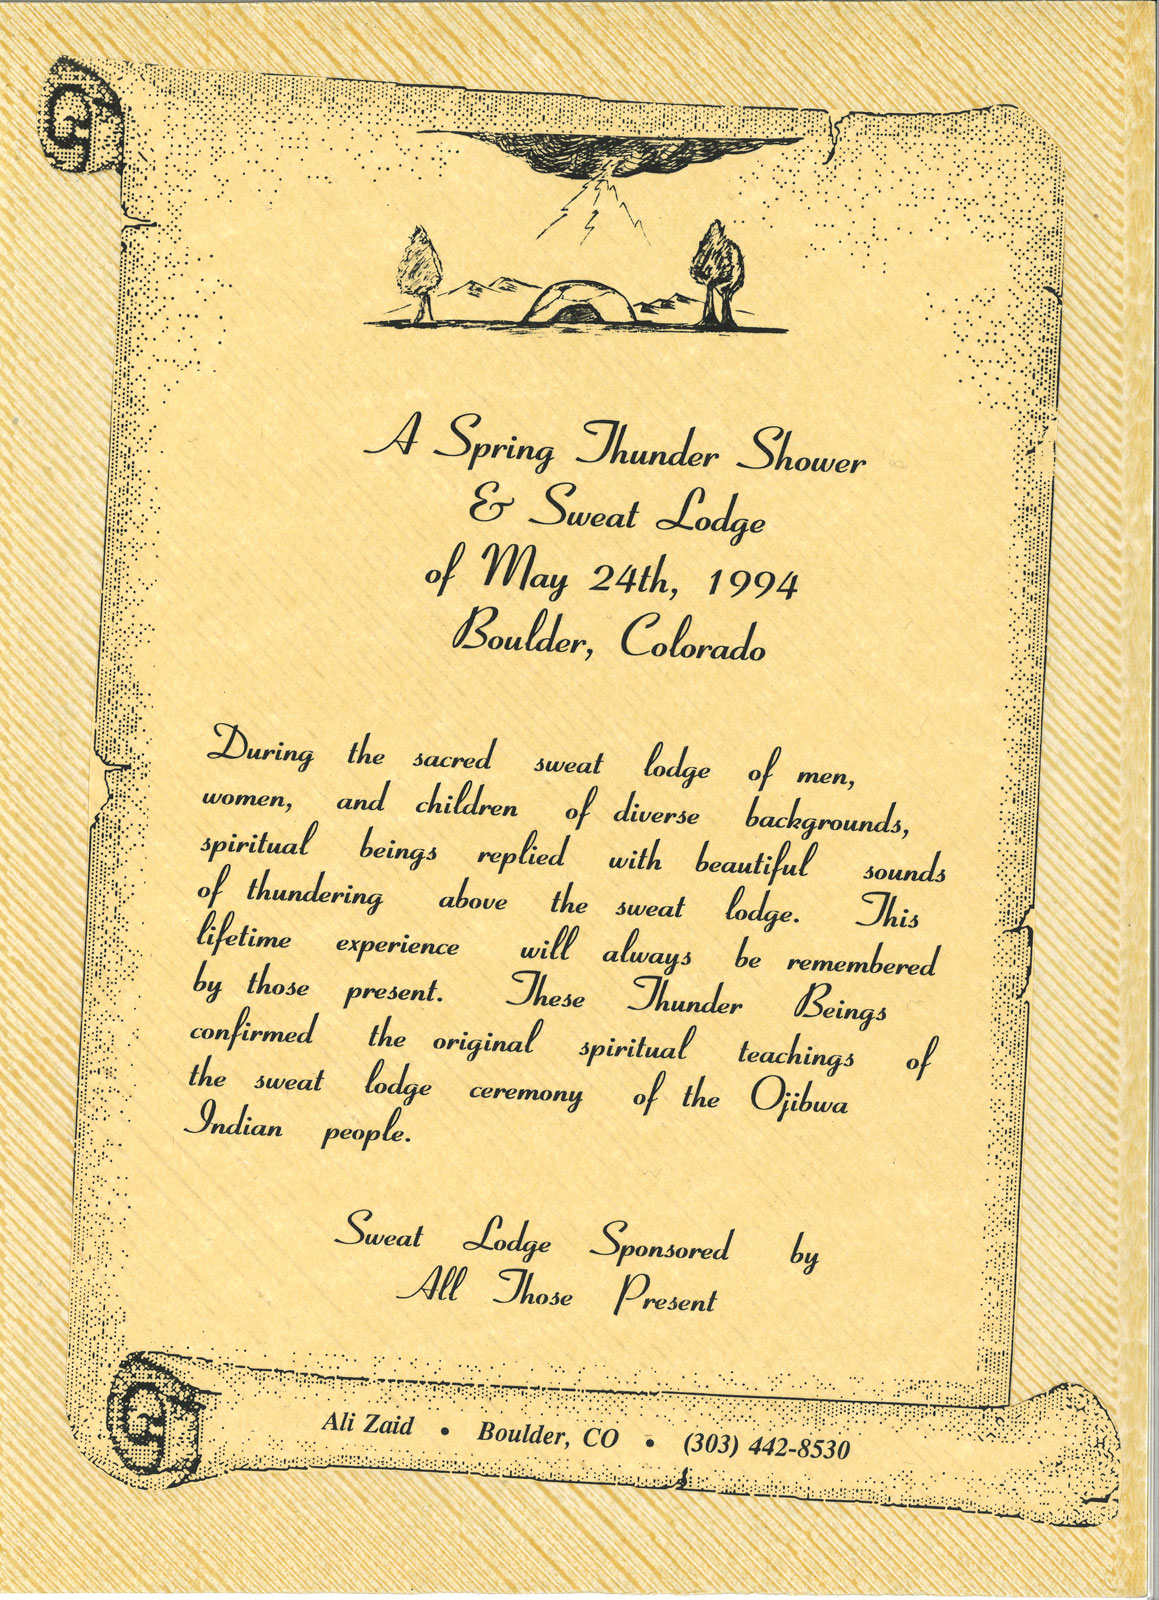 A Spring Thunder Shower
& Sweat Lodge
of May 24th, 1994
Boulder, Colorado
During the sacred sweat lodge of men,
women, and children of diverse backgrounds,
spiritual beings replied with beautiful sounds
of thundering above the sweat lodge. This
lifetime experience will always be remembered
by those present. These Thunder Beings
confirmed the original spiritual teachings of
the sweat lodge ceremony of the Ojibwa
Indian people.
Sweat Lodge Sponsored by
All Those Present
Ali Zaid • Boulder, CO • (303) 442-8530